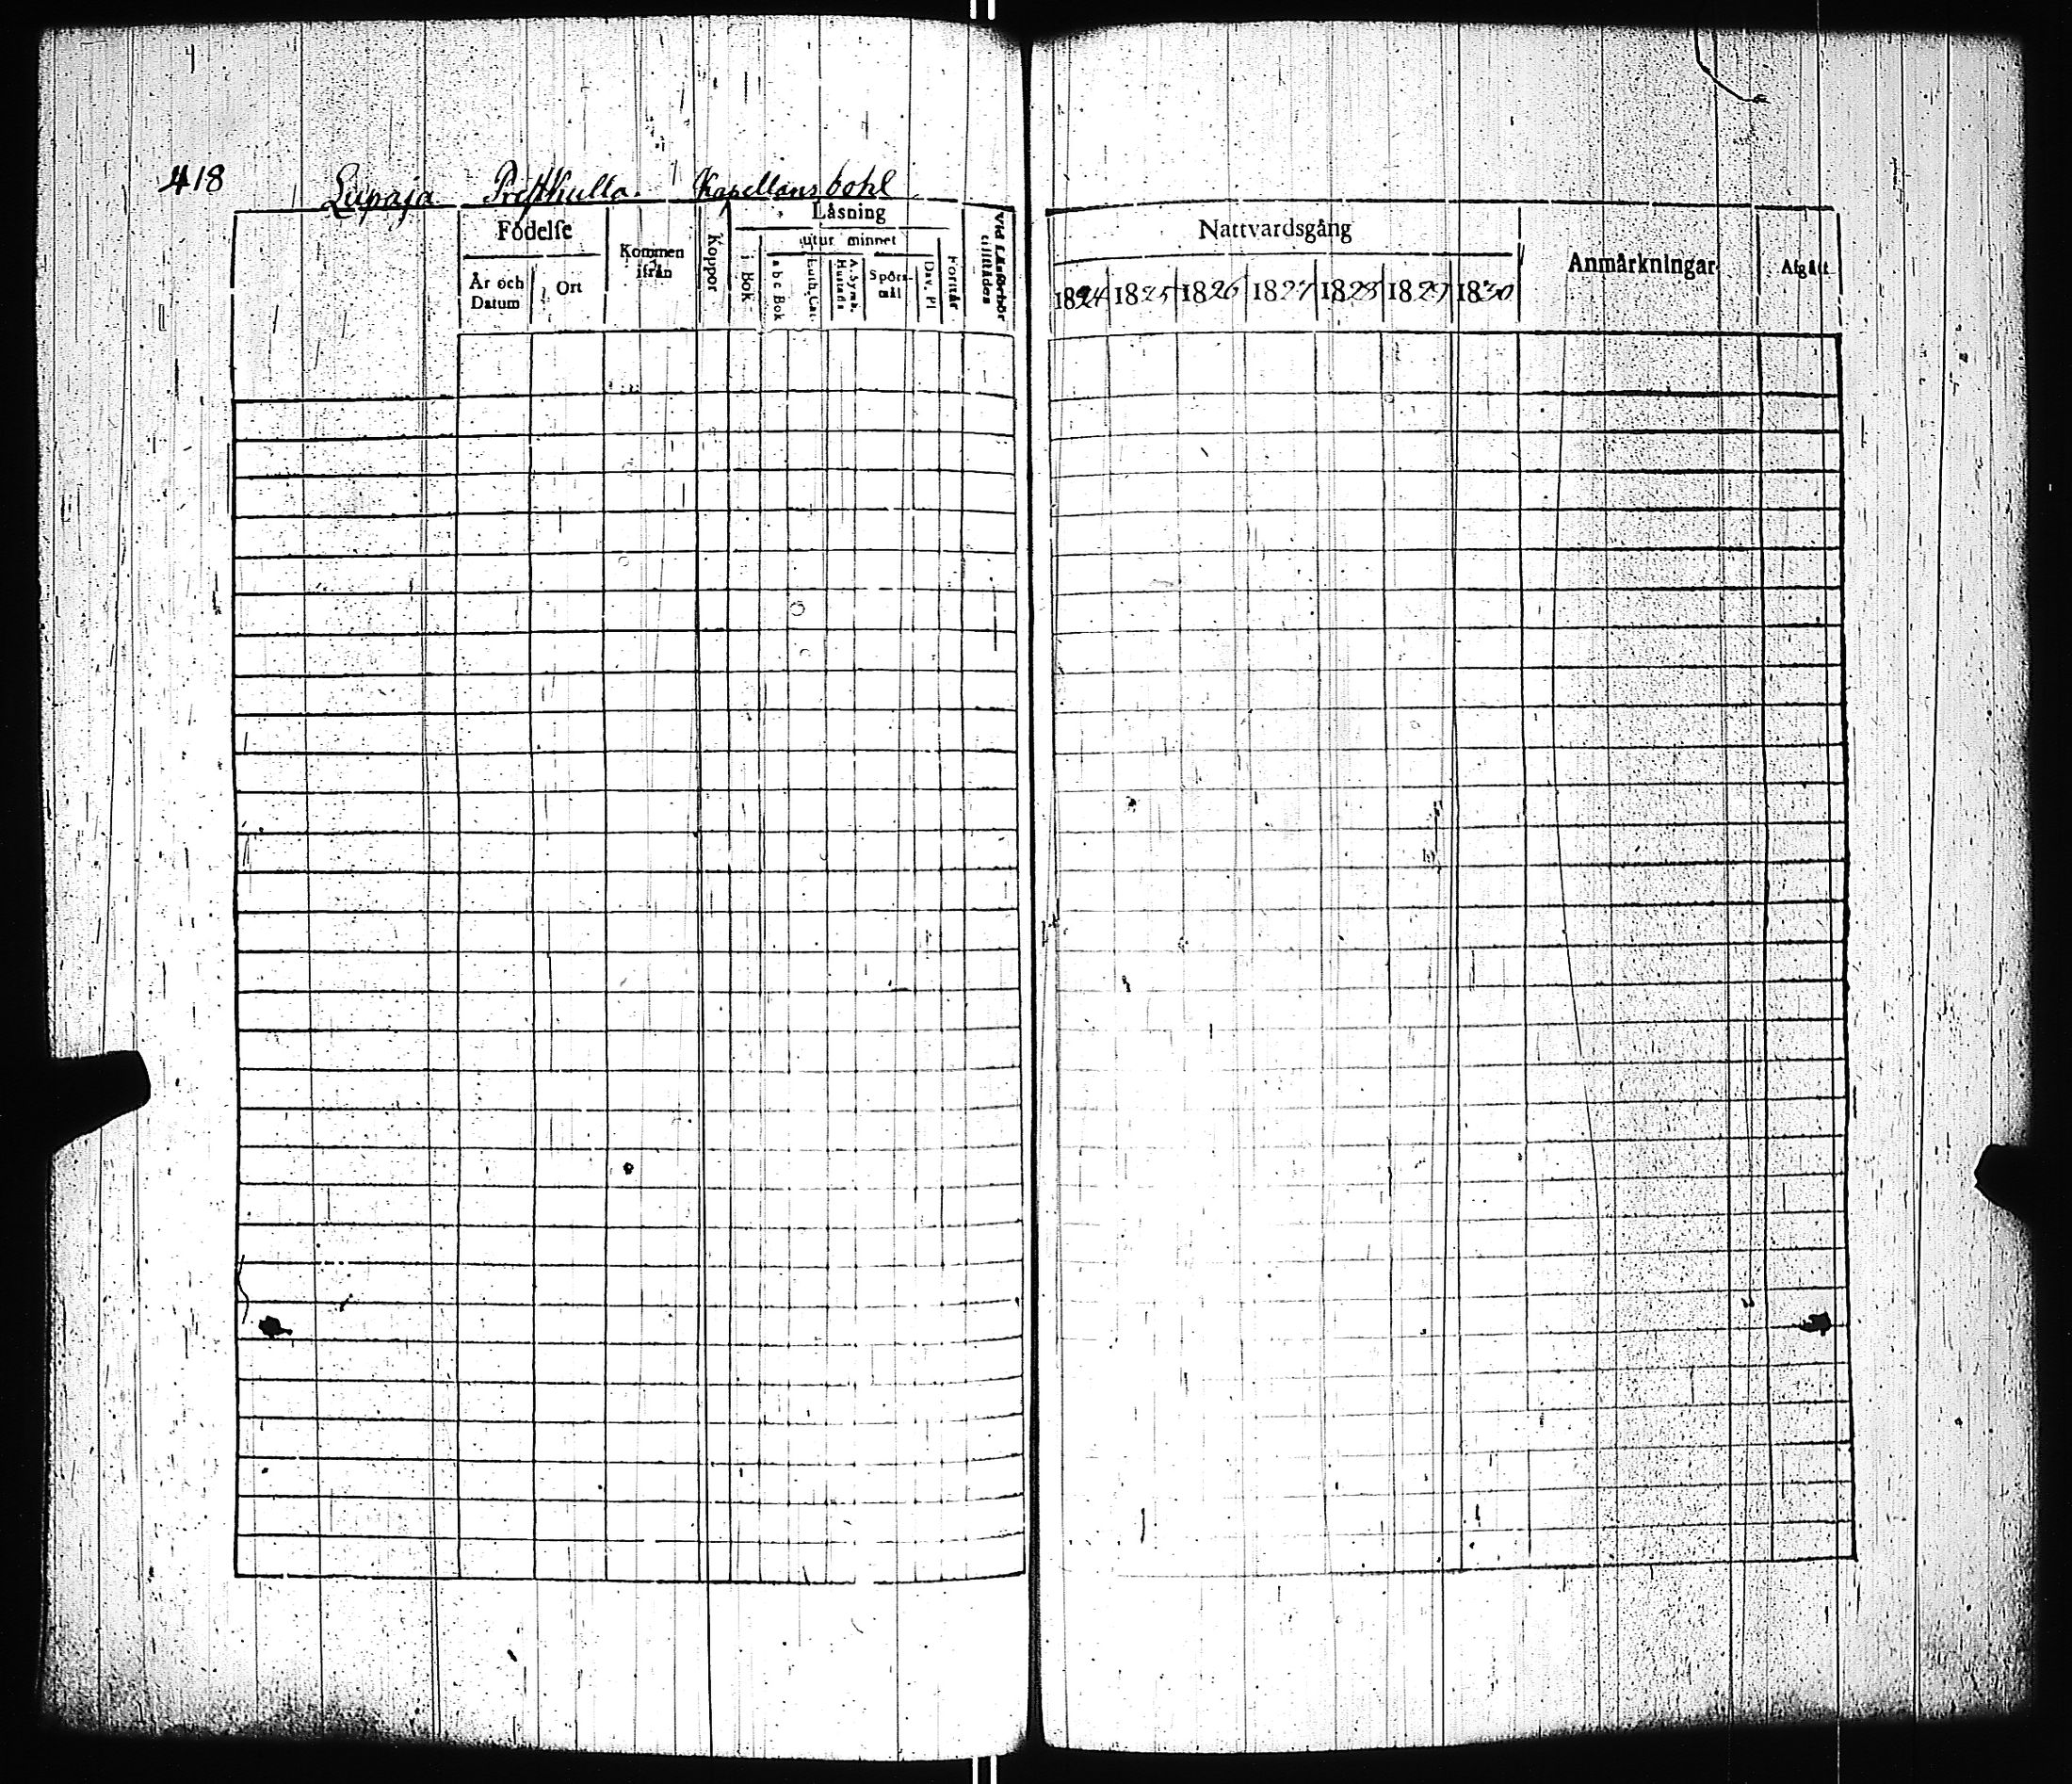 418
Lupaja Prästkulla. Kapellansbohl
Födelse
År och Datum
Ort
Kommen ifrån
Koppor
Låsning
i Bok
utur minnet
a b c Bok
Luth. Cat.
Hustafla
A. Symb.
Spörsmål
Dav. Pl
Förstår
Vid Läsförhör tillstådes
Nattvardsgång
1824 1825 1826 1827 1828 1829 1830
Anmärkningar
Afgått